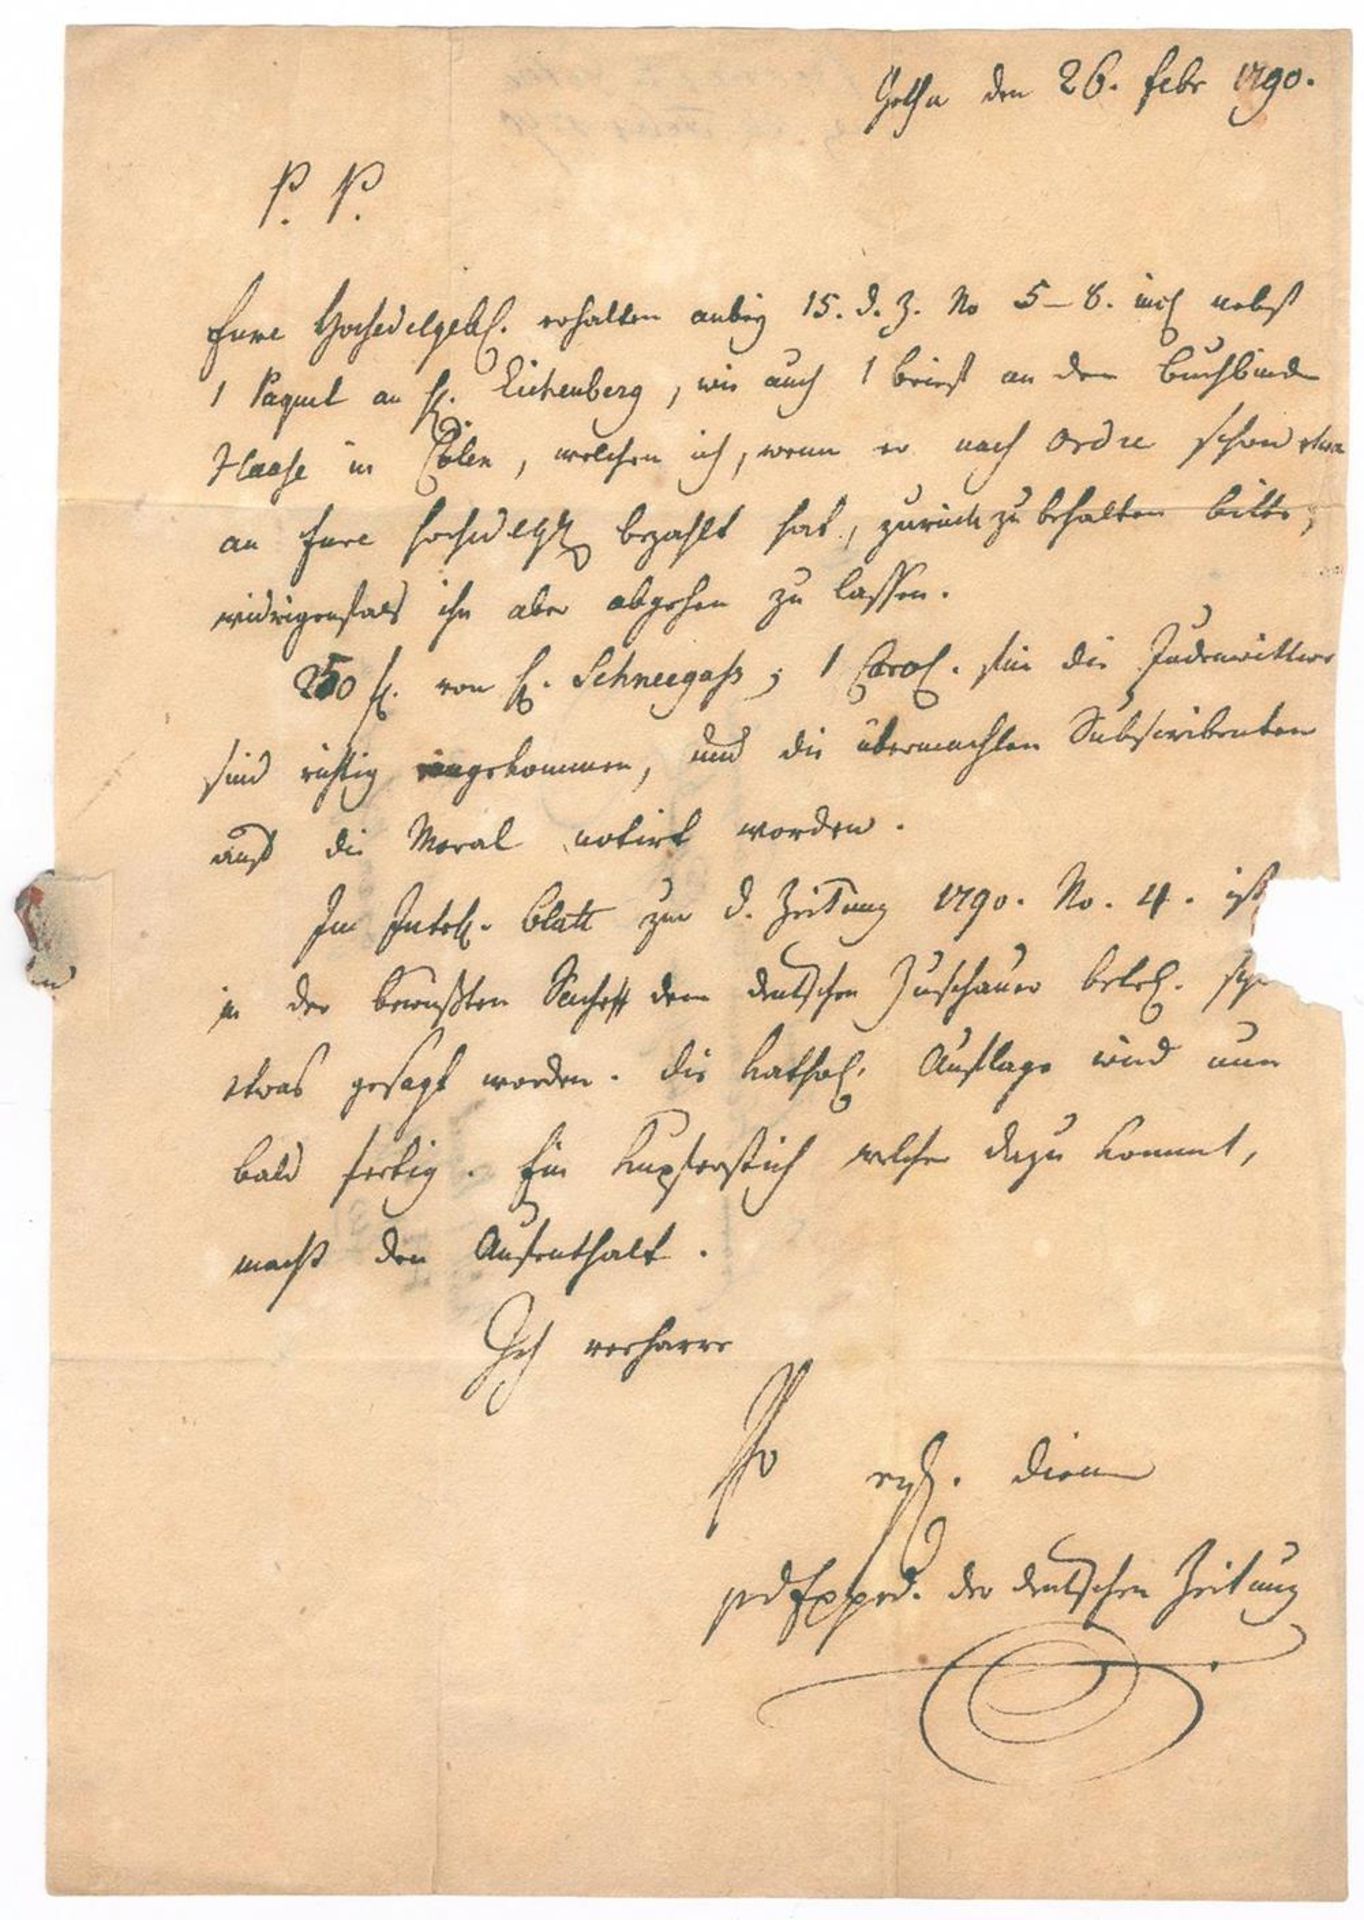 Gotha den 26. Febr 1790.
P. P.
Eure Hochedelgeb. erhalten anbey 15. d. Z. No 5–8. incl nebst
1 Paquet an H. Eichenberg, wie auch 1 Brief an den Buchbinder
Haase in Cölln, welchen ich, wenn er nach Ordre schon etwa
an Eure Hochedelgb bezahlt hat, zurück zu behalten bitte,
widrigenfals ihn aber abgehen zu lassen.
250 f. von H. Schneegass; 1 Carol. für die Judenwittwe
sind richtig eingekommen, und die übermachten Subscribenten
auf die Moral notirt worden.
Im Intell. Blatt zur d. Zeitung 1790. No. 4. ist
in der bewußten Sache dem deutschen Zuschauer betr.
etwas gesagt worden. Die kathol. Auflage wird nun
bald fertig. Ein Kupferstich welcher dazu kommt,
macht den Aufenthalt.
Ich verharre
Dero
erg. Diener
Exped. der deutschen Zeitung